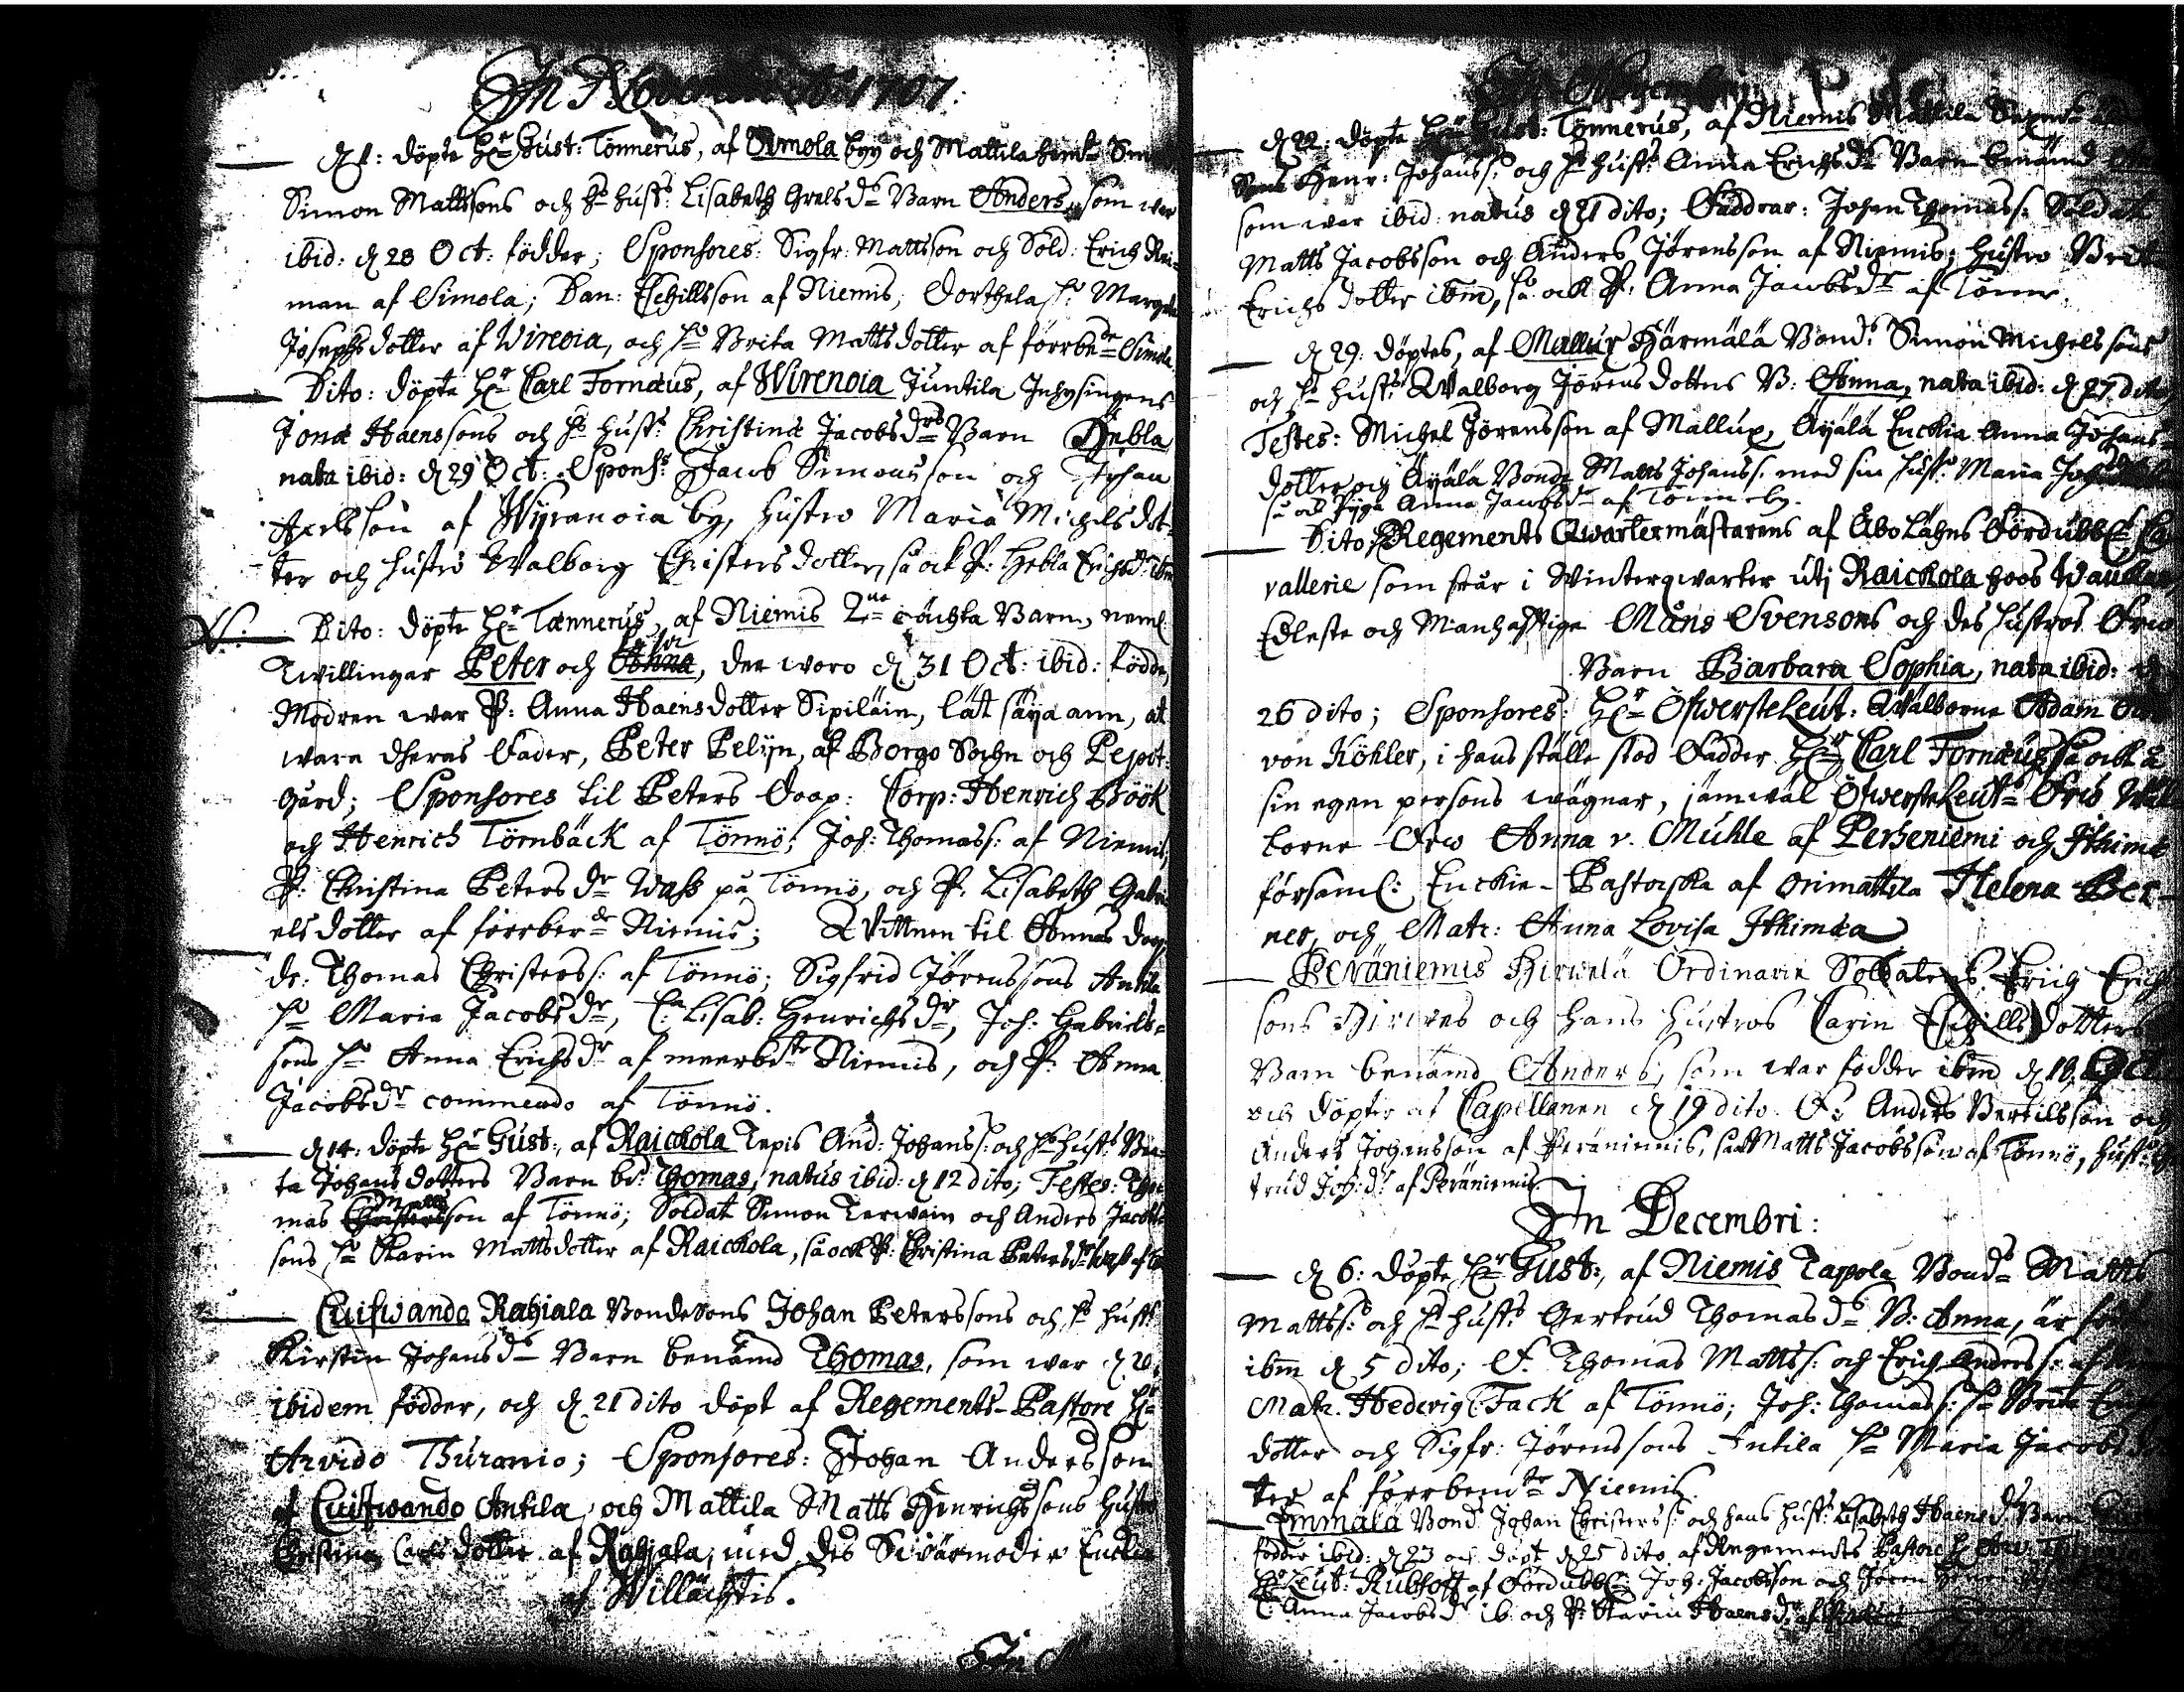 In Novembri Ao 1707:
d. 1: döpte Hr Gust: Tönnerus, af Simola byy och Mattila hemt
Simon Mattssons och hs hust: Lisabeth Grelsdr Barn Anders, som war
ibid: d 28 Oct: födder; Sponsores: Sigfr: Mattsson och Sold: Erich Rei-
man af Simola; Dan: Eschillsson af Niemis, Dorthela
Josephsdotter af Wirenoia, och ho Brita Mattsdotter af förrbede Simola
Dito: döpte Hr Carl Fornæus, af Wirenoia Juntila Inhysingens
Jonæ Haenssons och hs hust: Christinæ Jacobsdrs Barn Hebla
nata ibid: d 29 Oct: Spons: Jacob Simonsson och Johan
Axelsson af Wyranoia by, hustro Maria Michelsdot-
ter och hustro Walborg Christersdotter, så ock P: Hebla Erichsdr ibm
N: Dito: döpte Hr Tœnnerus, af Niemis 2ne oächta Barn, neml
Twillingar Peter och Anna, der woro d 31 Oct: ibid: födde,
Modren war P: Anna Haensdotter Sipiläin, lät säya ann, at
wara dheras Fader, Peter Pelyn, af Borgo Sochn och Pepot
gård; Sponsores til Peters Doop: Corp: Henrich Böök
och Henrich Törnbäck af Tönnö; Joh: Thomass: af Niemis,
P: Christina Petersdr Wass på Tönnö, och P. Lisabeth Gabri-
elsdotter af förrberde Niemis; Wittnen til Annas doop
dr. Thomas Christerss: af Tönnö; Sigfrid Jörenssons Antila
ho Maria Jacobsdr, E: Lisab: Henrichsdr, Joh: Gabriels-
sons ho Anna Erichsdr af meerbdte Niemis, och P: Anna
Jacobsdr commendo af Tönnö.
d 14: döpte Hr Gust:, af Raickola Tepis And: Johanss: och hs hust: Bri-
ta Johansdotters Barn bd: Thomas, natus ibid: d 12 dito; Testes: Tho-
mas Mattsson af Tönnö; Soldat Simon Terwain och Anders Jacobs-
sons ho Karin Mattsdotter af Raickola, så ock P: Christina Petersdr Wass af
Cuiswando Rahiala Bondesons Johan Peterssons och hs hust:
Kirstin Johansdr Barn benämd Thomas, som war d
ibidem födder, och d. 21 dito döpt af Regements-Pastore Hr
Arvido Thuronio; Sponsores: Johan Andersson
af Cuiswando Antila, och Mattila Matts Henrichssons hustro
Christina Carlsdotter af Rahiala, med des Swärmoder Enckia
af Willächtis.
d 22: döpte Hr Gust: Tönnerus, af Niemis Mattila
Sons Henr: Johanss: och hs hust: Anna Erichsdr Barn benämd
som war ibid: natus d 21 dito; Faddrar: Johan Thomass: Soldat
Matts Jacobsson och Anders Jörensson af Niemis; hustro Brita
Erichsdotter ibm, så ock P. Anna Jacobsdr af Tönnö.
d 29: döptes, af Mallux Härmälä Bond: Simon Michelssons
och hs hust: Walborg Jörensdotters B: Anna, nata ibid: d 27 dito
Testes: Michel Jörensson af Mallux, Äyälä Enckia Anna Johans-
dotter och Äyälä Bond: Matts Johanss: med sin hust: Maria
så ock Pyga Anna Jacobsdr af Tönnö by.
Dito, Regements Qwartermästarens af Åbo Lähns Fördubbl: Ca-
vallerie som står i Winterqwarter uti Raickola hoos
Edleste och Manhafftige Måns Svensons och des hustros Fru
Barn Barbara Sophia, nata ibid: d
26 dito; Sponsores: Hr ÖfwersteLeut: Wälborne Adam
von Köhler, i hans ställe stod Fadder Hr Carl Fornæus, så ock å
sin egen persons wägnar, jämwäl ÖfwersteLeut: Fru Wäl-
borne Fru Anna v. Mühle af Perheniemi och Ithimæ
församl: Enckie-Pastorska af Orimattila Helena Ber-
ner, och Matr: Anna Lovisa Ithimæa
Peräniemis Hirwelä Ordinarie Soldatens Erich Erich-
sons Hirwes och hans hustros Carin Eschillsdotters
Barn benämd Anders, som war födder ibm d 18, Oct:
och döpter af Capellanen d 19 dito. F: Anders Bertilsson och
Anders Johansson af Peräniemis, samt Matts Jacobsson af Tönnö, hust:
trud Joh:dr af Peräniemis
In Decembri:
d 6: döpte Hr Gust:, af Niemis Tapola Bond: Matts
Mattss: och hs hust: Gertrud Thomasdr B: Anna, är född
ibm d 5 dito; F. Thomas Mattss: och Erich Anderss: af
Matr. Hedevig Fack af Tönnö; Joh: Thomass: ho Brita Erichs-
dotter och Sigfr: Jörenssons Antila ho Maria Jacobsdot-
ter af förrbemte Niemis.
Immälä Bond: Johan Christerss: och hans hust: Lisabeth Haensdr Barn
födder ibid: d 23 och döpt d 25 dito af Regements Pastore Hr Arv.
Hr Leut: Rubhoff af Fördubbl: Joh: Jacobsson och Jören
E: Anna Jacobsdr ib. och P: Karin Haensdr af